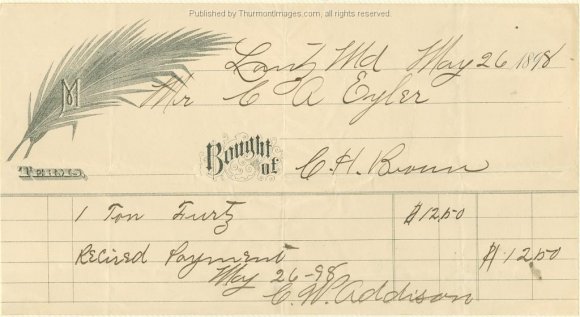 Published by ThurmontImages.com, all rights reserved.
Lantz Md May 26 1898
M
Mr C A Eyler
Bought of
C. H. Brown
Terms
1 Ton Furtz $12.50
Recived Payment $12.50
May 26-98
C. W. Addison